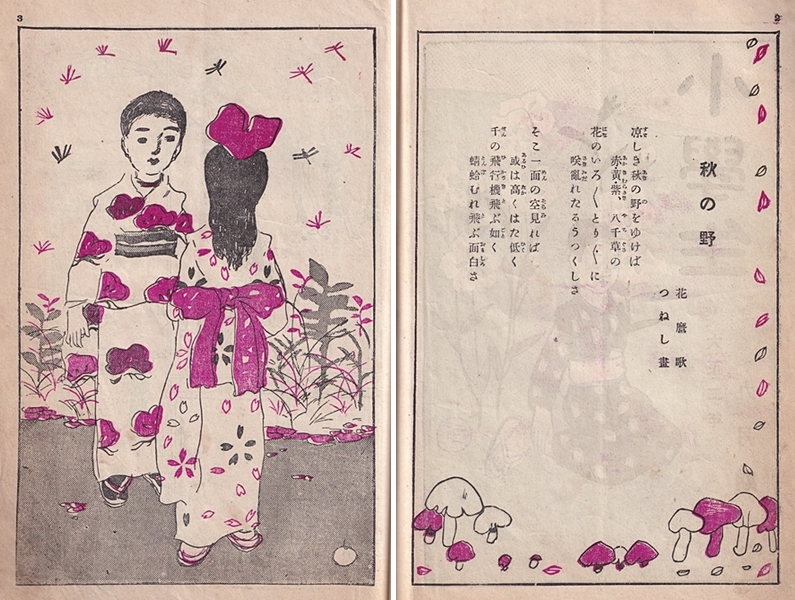 2
秋の野
花麿歌
つねし畫
凉しき秋の野をゆけば
赤黄紫、八千草の
花のいろ〳〵とり〴〵に
咲亂れたるうつくしさ
そこ一面の空見れば
或は高くはた低く
千の飛行機飛ぶ如く
蜻蛉むれ飛ぶ面白さ
3